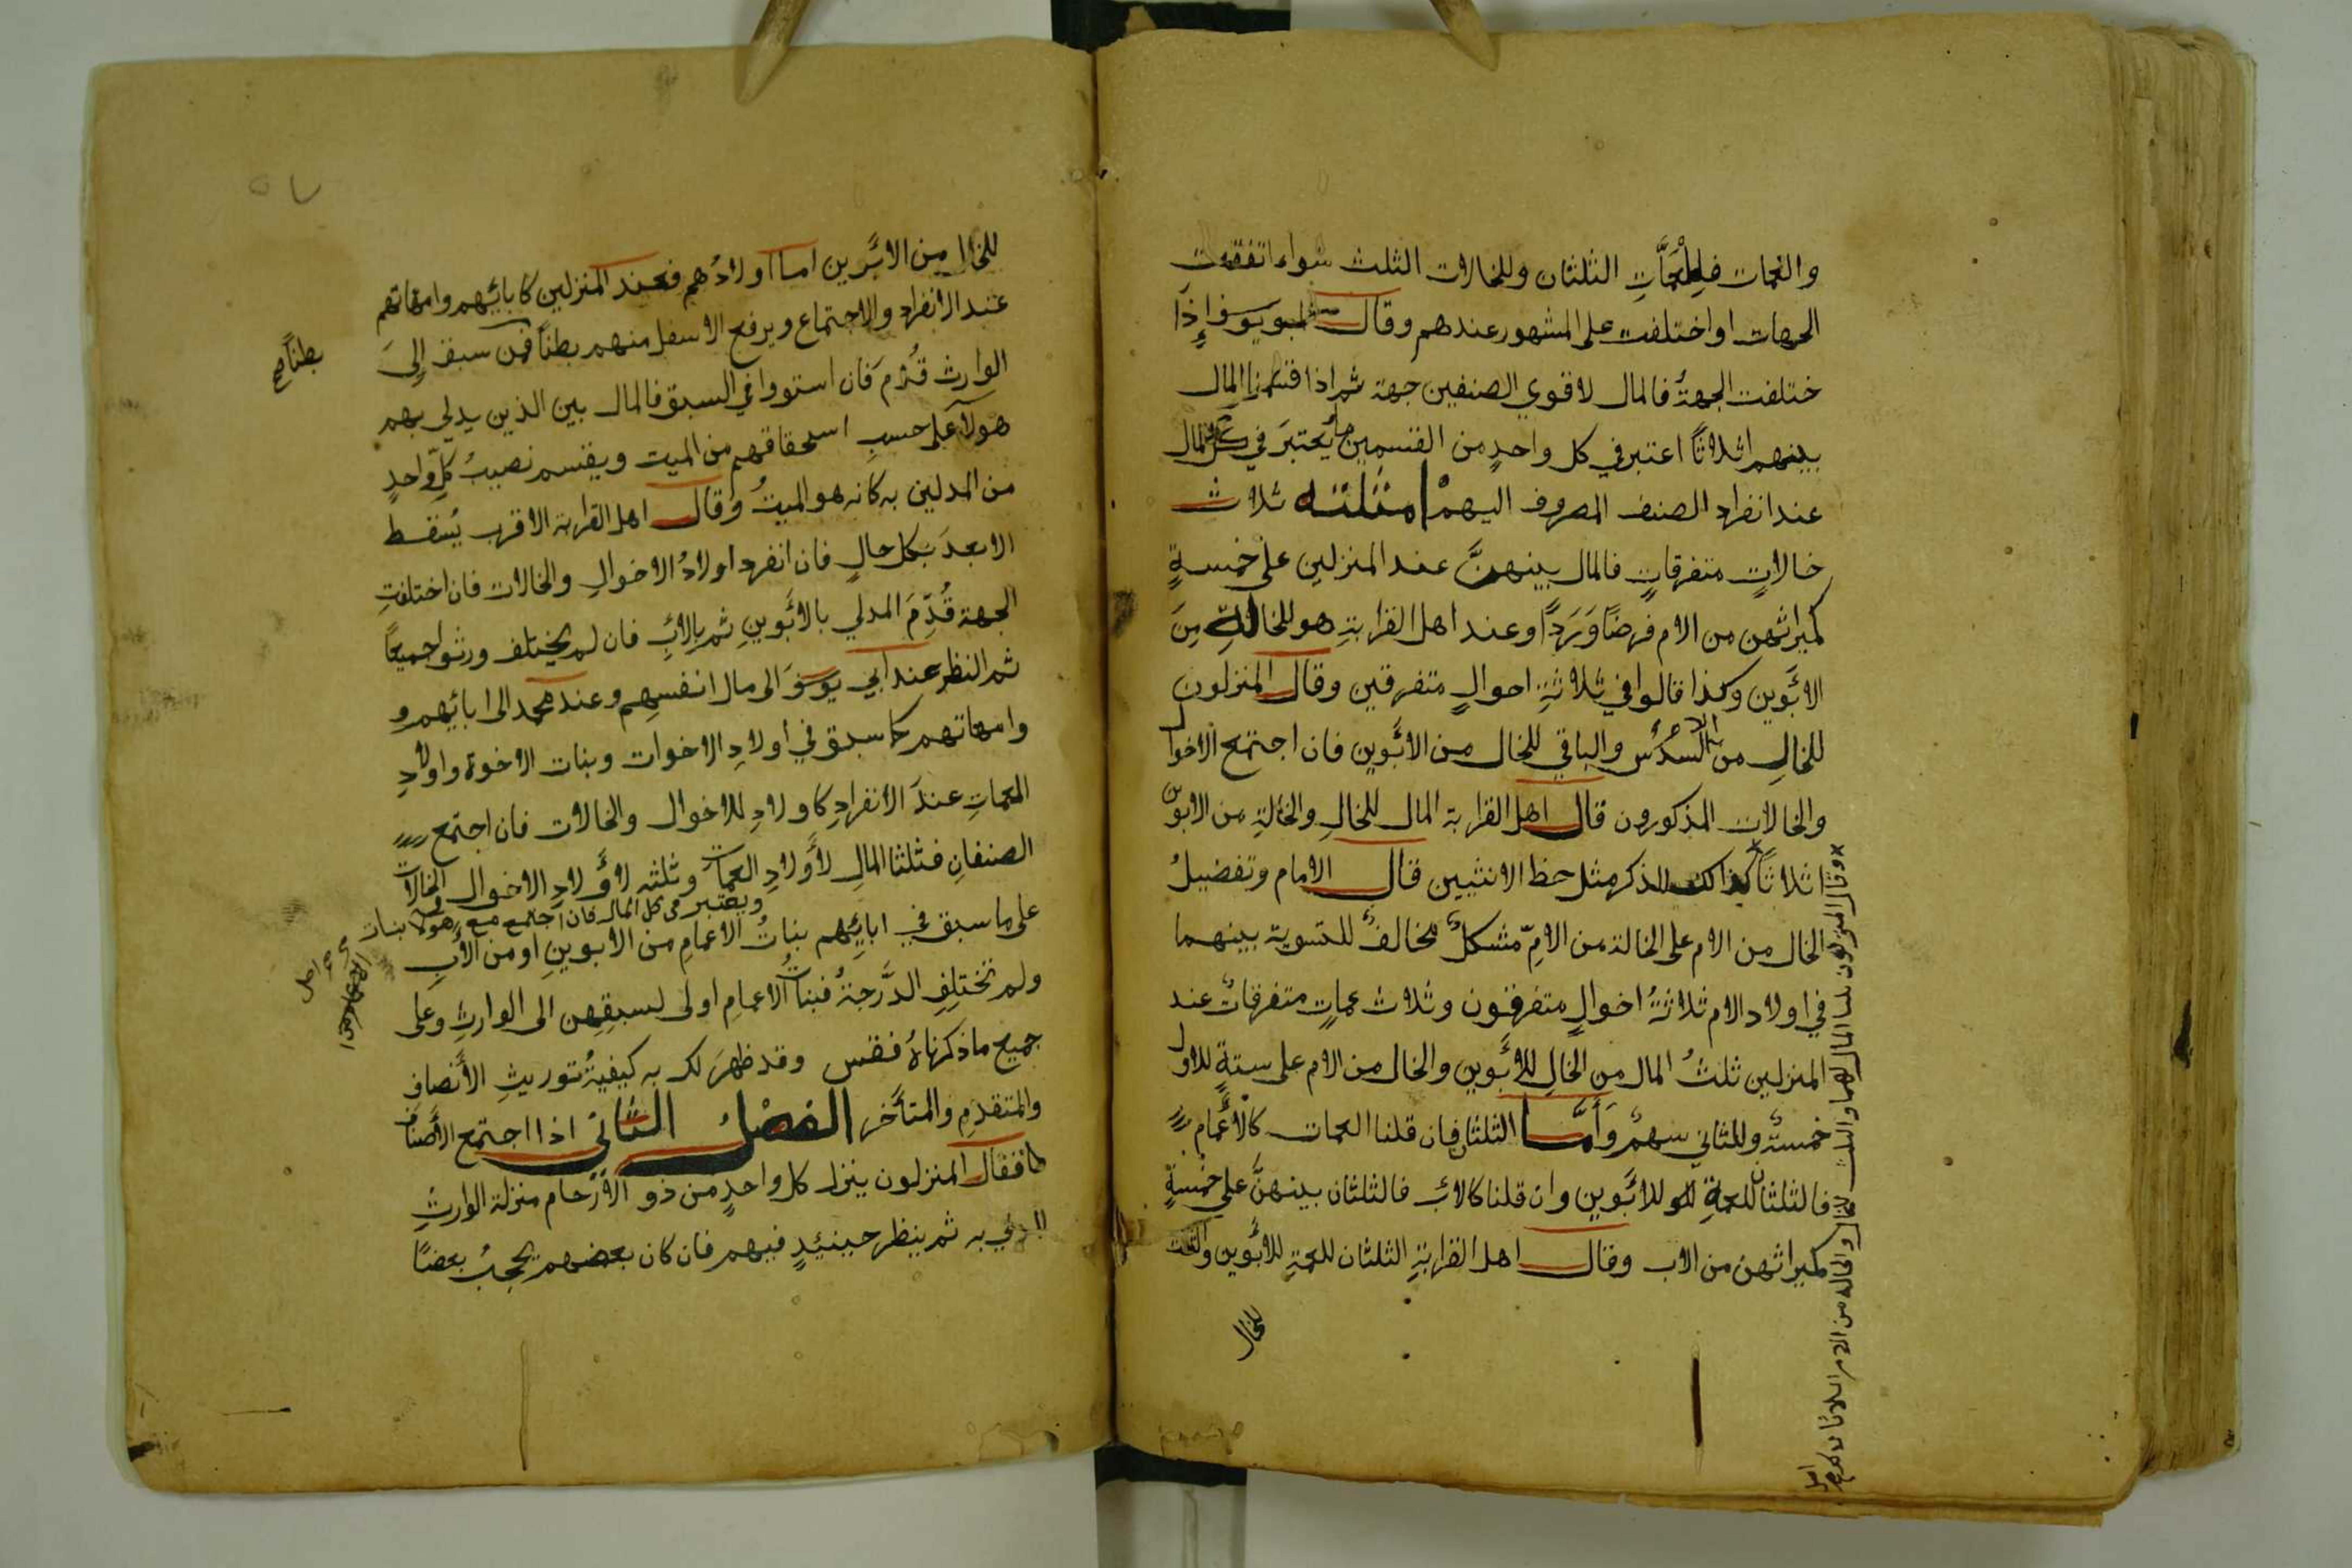 والعمات فللعمات الثلثان وللخالات الثلث سواء اتفقت
الجهات او اختلفت على المشهور عندهم وقال ابو يوسف اذا
ختلفت الجهة فالمال لاقوي الصنفين جهة ثم اذا قسمنا المال
بينهم اثلاثا اعتبر في كل واحد من القسمين ما يعتبر في كل المال
عند انفراد الصنف المصروف اليهم امثلته ثلاث
خالات متفرقات فالمال بينهن عند المنزلين على خمسة
كميراثهن من الام فرضا وردا وعند اهل القرابة هو للخالة من
الابوين وكذا قالوا في ثلاثة احوال متفرقين وقال المنزلون
للخال من الام السدس والباقي للخال من الابوين فان اجتمع الاخوال
والخالات المذكورون قال اهل القرابة المال للخال والخالة من الابوين
اثلاثا كذلك للذكر مثل حظ الانثيين قال الامام وتفضيل
الخال من الام على الخالة من الام مشكل مخالف للتسوية بينهما
في اولاد الام ثلاثة اخوال متفرقون وثلاث عمات متفرقات عند
المنزلين ثلث المال من الخال للابوين والخال من الام على ستة للاول
خمسة وللثاني سهم واما الثلثان فان قلنا العمات كالاعمام
فالثلثان للعمة للابوين وان قلنا كالاب فالثلثان بينهن على خمسة
كميراثهن من الاب وقال اهل القرابة الثلثان للعمة للابوين والثلث
للخال
وقال المنزلون ثلث المال لهما والثلثان للخال والخالة من الام اثلاثا
للخال من الابوين اما اولادهم فعند المنزلين كابائهم وامهاتهم
عند الانفراد والاجتماع ويرفع الاسفل منهم بطنا فمن سبق الى
بطنا صح
الوارث قدم فان استووا في السبق فالمال بين الذين يدلي بهم
هولآ على حسب استحقاقهم من الميت ويقسم نصيب كل واحد
من المدلين به كانه هو الميت وقال اهل القرابة الاقرب يسقط
الابعد بكل حال فان انفرد اولاد الاخوال والخالات فان اختلفت
الجهة قدم المدلي بالابوين ثم بالاب فان لم يختلف ورثوا جميعا
ثم النظر عند ابي يوسف الى مال انفسهم وعند محمد الى ابائهم و
وامهاتهم كما سبق في اولاد الاخوات وبنات الاخوة واولاد
العمات عند الانفراد كاولاد للاخوال والخالات فان اجتمع
الصنفان فثلثا المال لاولاد العمات وثلثه لاولاد الاخوال والخالات
ويعتبر في كل المال فان اجتمع مع هولا بنات
على ما سبق في ابائهم بنات الاعمام من الابوين او من الاب
ولم تختلف الدرجة فبنات الاعمام اولى لسبقهن الى الوارث وعلى
جميع ما ذكرناه فقس وقد ظهر لك به كيفية توريث الأنصاف
والمتقدم والمتأخر الفصل الثاني اذا اجتمع الأصناف
فقال المنزلون ينزل كل واحد من ذو الأرحام منزلة الوارث
الذي به ثم ينظر حينئذ فيهم فان كان بعضهم يحجب بعضا